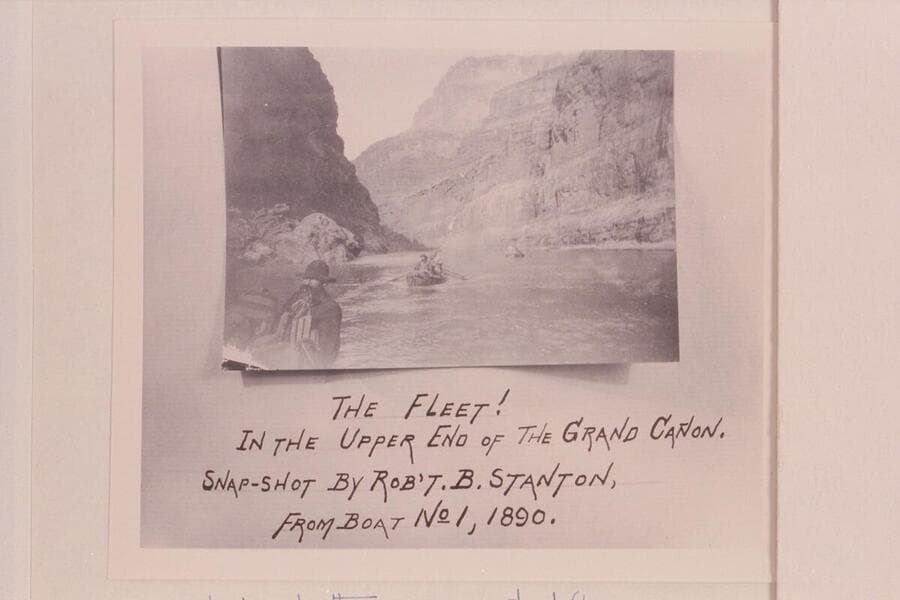 THE FLEET!
IN THE UPPER END OF THE GRAND CAÑON.
SNAP-SHOT BY ROB'T. B. STANTON,
FROM BOAT No 1, 1890.